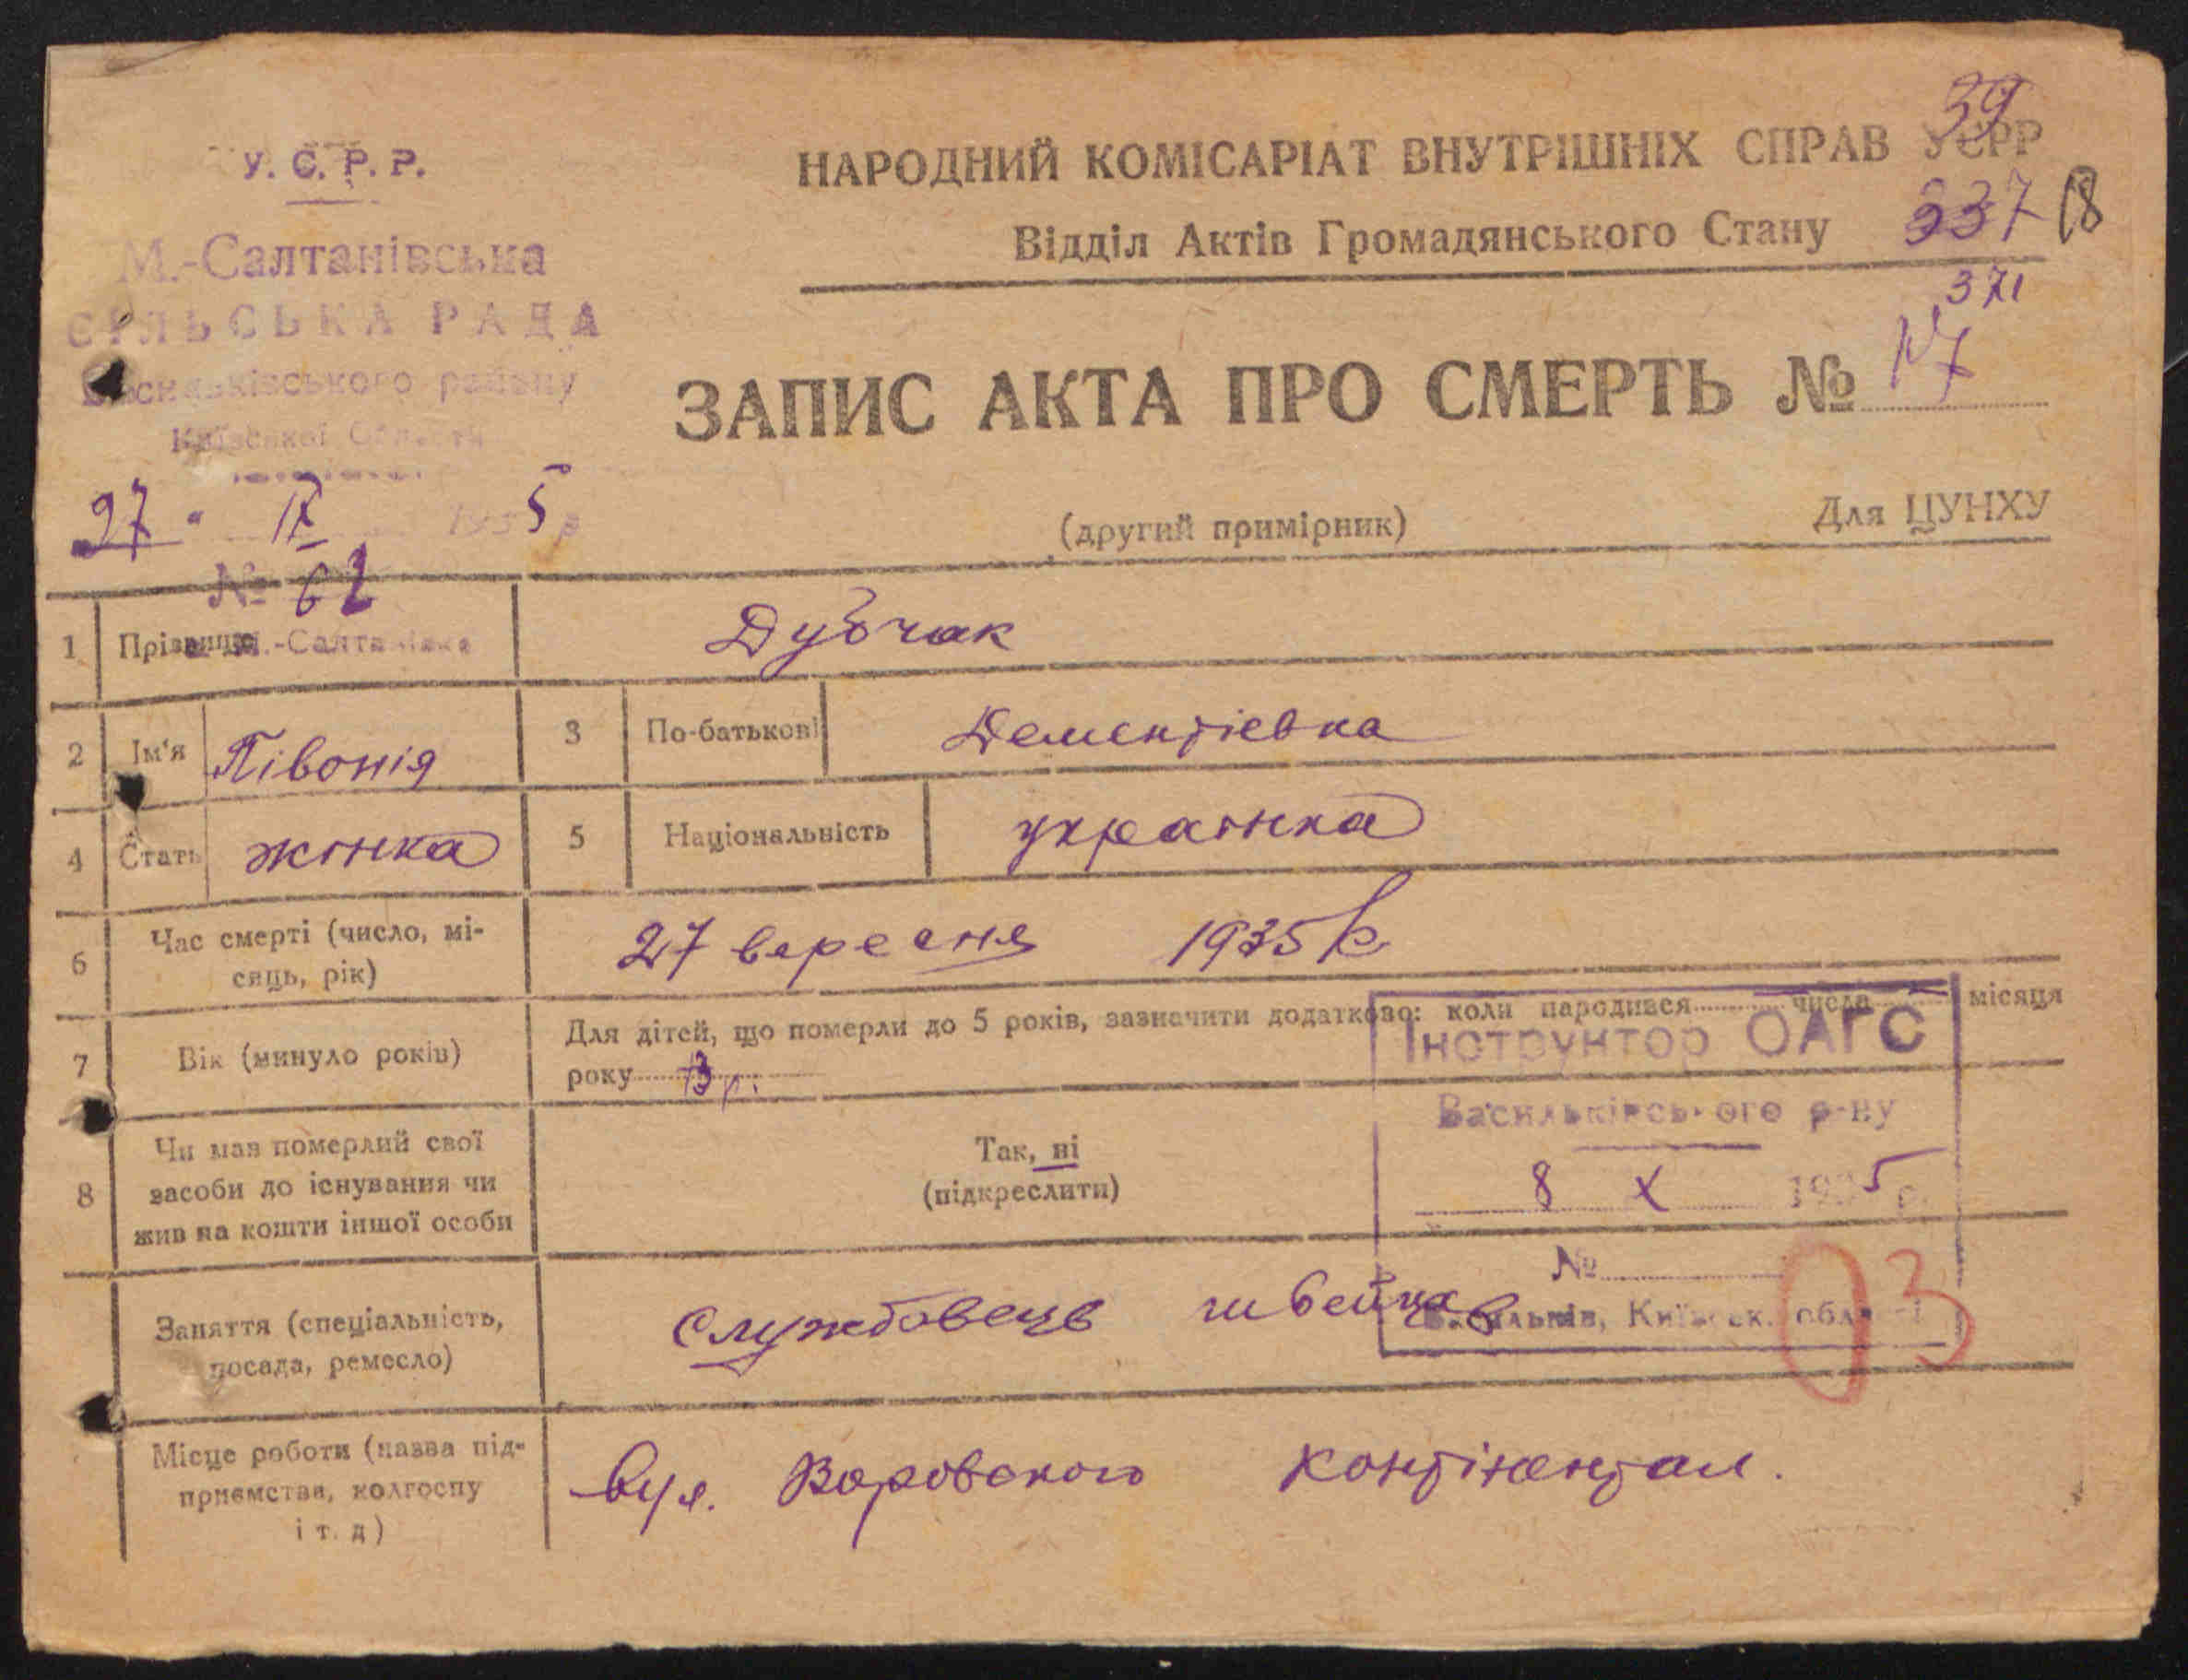 39
У. С. Р. Р.
НАРОДНИЙ КОМІСАРІАТ ВНУТРІШНІХ СПРАВ УСРР
М.-Салтанівська
Відділ Актів Громадянського Стану
337 18
СІЛЬСЬКА РАДА
371
Васильківського району
ЗАПИС АКТА ПРО СМЕРТЬ №
Київської Области
27 " IX 1935 р
(другий примірник)
Для ЦУНХУ
№ 62
М.-Салтанівка
1 Прізвище Дубчак
2 Ім'я Півонія 3 По-батькові Дементієвна
4 Стать жінка 5 Національність українка
6 Час смерті (число, мі-
сяць, рік) 27 вересня 1935 р
7 Вік (минуло років) Для дітей, що померли до 5 років, зазначити додатково: коли народився числа місяця
року р.
Інструктор ОАГС
Васильківського р-ну
8 X 1935 р.
№
Васильків, Київськ. області
8 Чи мав померлий свої
засоби до існування чи
жив на кошти іншої особи
Так, ні
(підкреслити)
03
Заняття (спеціальність,
посада, ремесло) Службовець
Місце роботи (назва під-
приємства, колгоспу
і т. д) вул. Воровского Контінентал.